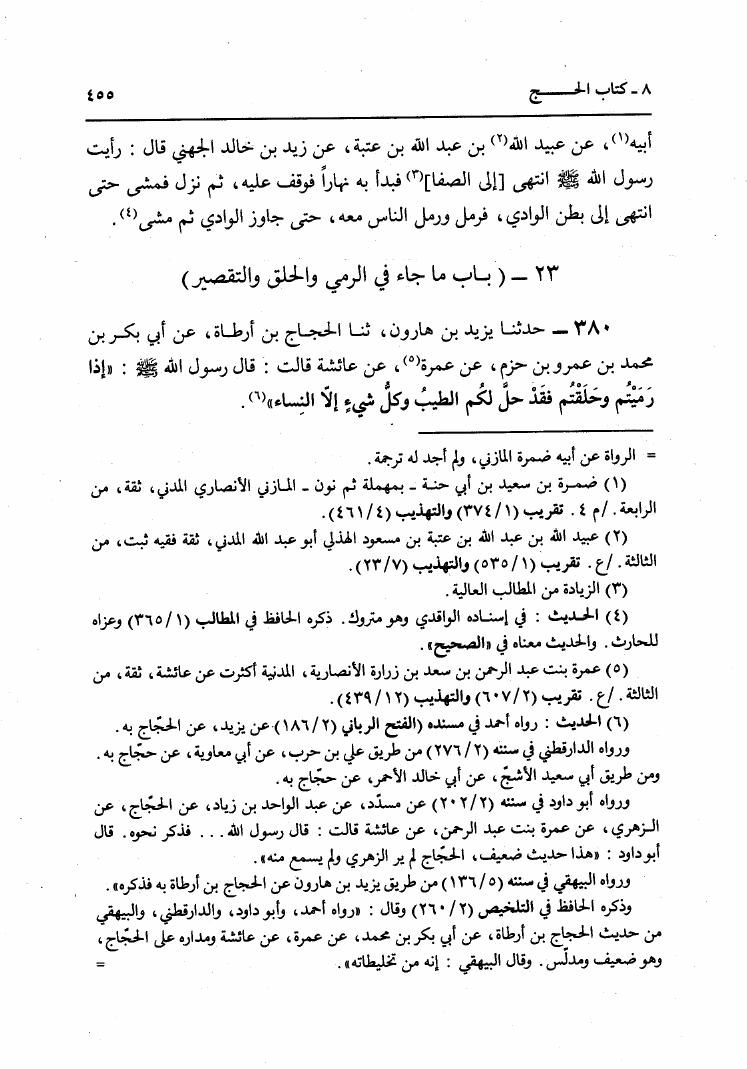 ٨ ـ كتاب الحـــــــج ٤٥٥
أبيه(١)، عن عبيد الله(٢) بن عبد الله بن عتبة، عن زيد بن خالد الجهني قال : رأيت
رسول الله ﷺ انتهى [إلى الصفا](٣) فبدأ به نهاراً فوقف عليه، ثم نزل فمشى حتى
انتهى إلى بطن الوادي، فرمل ورمل الناس معه، حتى جاوز الوادي ثم مشى(٤).
٢٣ ــ ( بــاب ما جاء في الرمي والحلق والتقصير )
٣٨٠ ــ حدثنـا يزيد بن هارون، ثنـا الحجـاج بن أرطـاة، عن أبي بكـر بن
محمد بن عمرو بن حزم، عن عمرة(٥)، عن عائشة قالت : قال رسول الله ﷺ : «إذا
رَمَيْتُم وحَلَقْتُم فقَدْ حلَّ لكُم الطيبُ وكلُّ شيءٍ إلّا النِساء»(٦).
= الرواة عن أبيه ضمرة المازني، ولم أجد له ترجمة.
(١) ضمـرة بن سعيد بن أبي حنـة ـ بمهملة ثم نون ـ المـازني الأنصاري المدني، ثقة، من
الرابعة. /م ٤. تقريب (٣٧٤/١) والتهذيب (٤٦١/٤).
(٢) عبيد الله بن عبد الله بن عتبة بن مسعود الهذلي أبو عبد الله المدني، ثقة فقيه ثبت، من
الثالثة. /ع. تقريب (٥٣٥/١) والتهذيب (٢٣/٧).
(٣) الزيادة من المطالب العالية.
(٤) الحـديث : في إسنـاده الواقدي وهو متروك. ذكره الحافظ في المطالب (٣٦٥/١) وعزاه
للحارث. والحديث معناه في «الصحيح».
(٥) عمرة بنت عبد الرحمن بن سعد بن زرارة الأنصارية، المدنية أكثرت عن عائشة، ثقة، من
الثالثة. /ع. تقريب (٦٠٧/٢) والتهذيب (٤٣٩/١٢).
(٦) الحديث : رواه أحمد في مسنده (الفتح الرباني (١٨٦/٢) عن يزيد، عن الحجّاج به.
ورواه الدارقطني في سننه (٢٧٦/٢) من طريق علي بن حرب، عن أبي معاوية، عن حجّاج به.
ومن طريق أبي سعيد الأشجّ، عن أبي خالد الأحمر، عن حجّاج به.
ورواه أبو داود في سننه (٢٠٢/٢) عن مسدّد، عن عبد الواحد بن زياد، عن الحجّاج، عن
الـزهري، عن عمرة بنت عبد الرحمن، عن عائشة قالت : قال رسول الله... فذكر نحوه. قال
أبو داود : «هذا حديث ضعيف، الحجّاج لم ير الزهري ولم يسمع منه».
ورواه البيهقي في سننه (١٣٦/٥) من طريق يزيد بن هارون عن الحجاج بن أرطاة به فذكره».
وذكره الحافظ في التلخيص (٢٦٠/٢) وقال : «رواه أحمد، وأبو داود، والدارقطني، والبيهقي
من حديث الحجاج بن أرطاة، عن أبي بكر بن محمد، عن عمرة، عن عائشة ومداره على الحجّاج،
وهو ضعيف ومدلّس. وقال البيهقي : إنه من تخليطاته». =